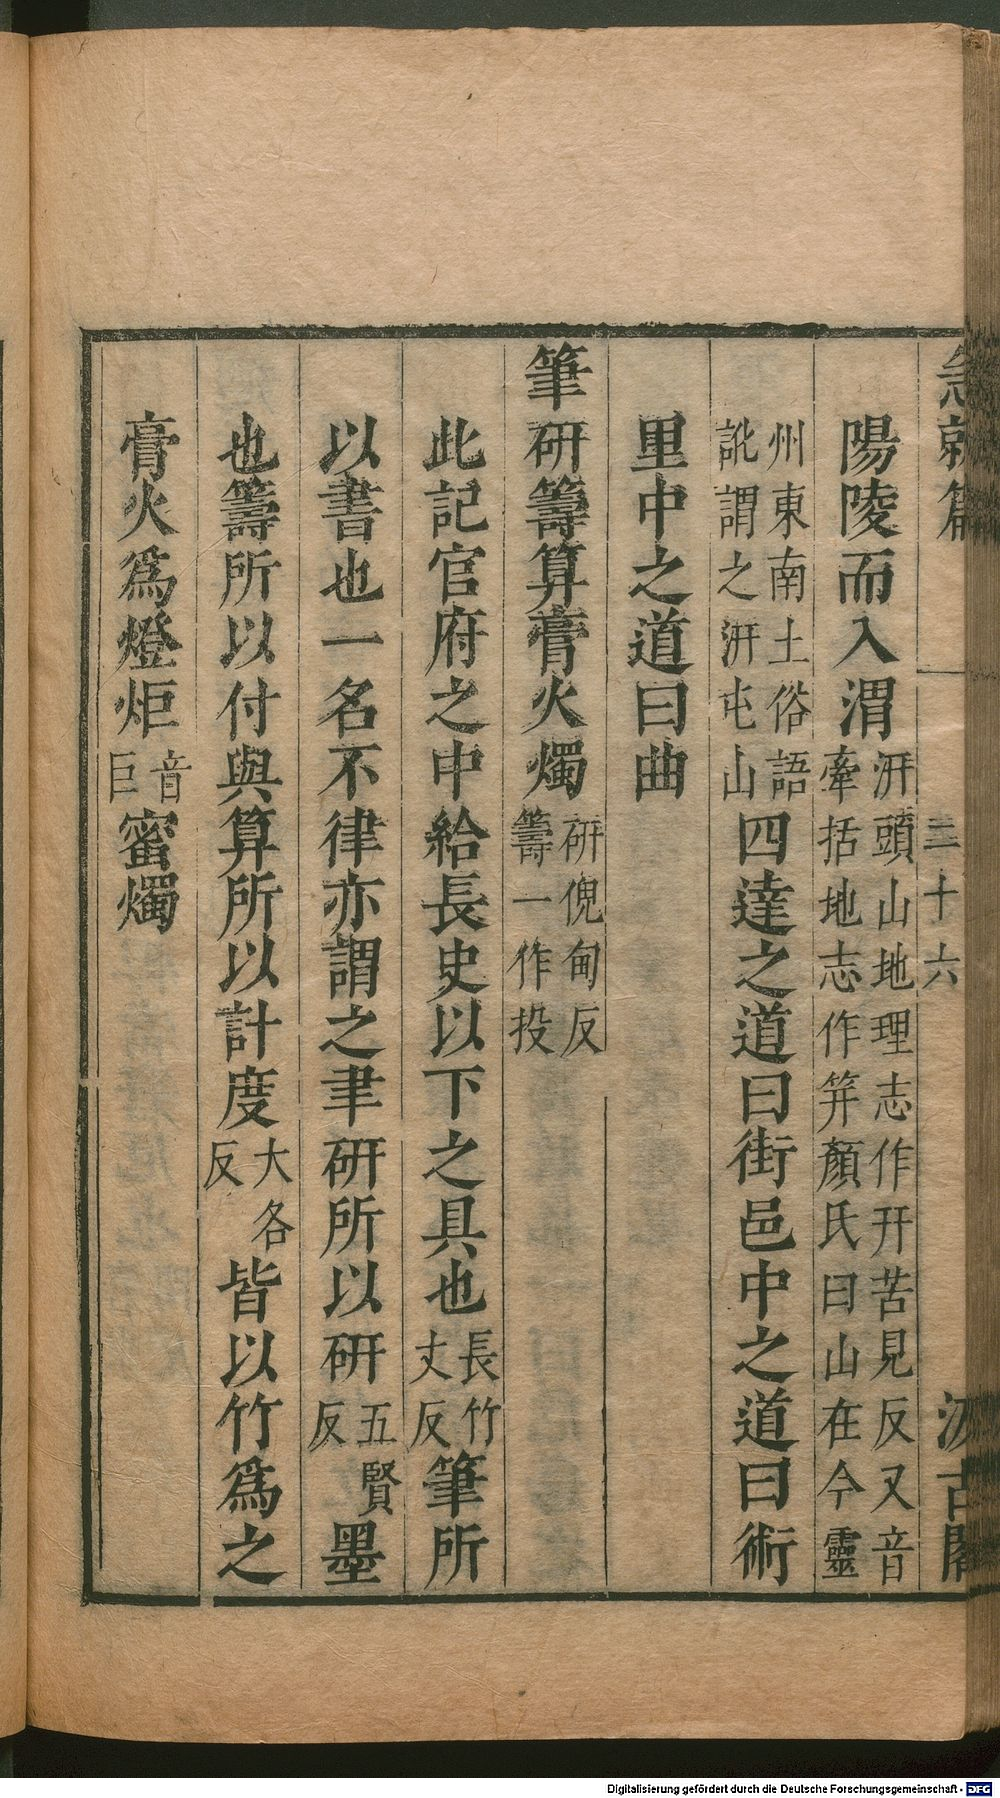 急就篇 三十六 汲古閣
陽陵而入渭汧頭山地理志作幵苦見反又音牽括地志作笄顏氏曰山在今靈
州東南土俗語訛謂之汧屯山四達之道曰街邑中之道曰術
里中之道曰曲
筆研籌算膏火燭研倪甸反籌一作投
此記官府之中給長史以下之具也長竹丈反筆所
以書也一名不律亦謂之聿研所以研五賢反墨
也籌所以付與算所以計度大各反皆以竹為之
膏火為燈炬音巨蜜燭
Digitalisierung gefördert durch die Deutsche Forschungsgemeinschaft - DFG